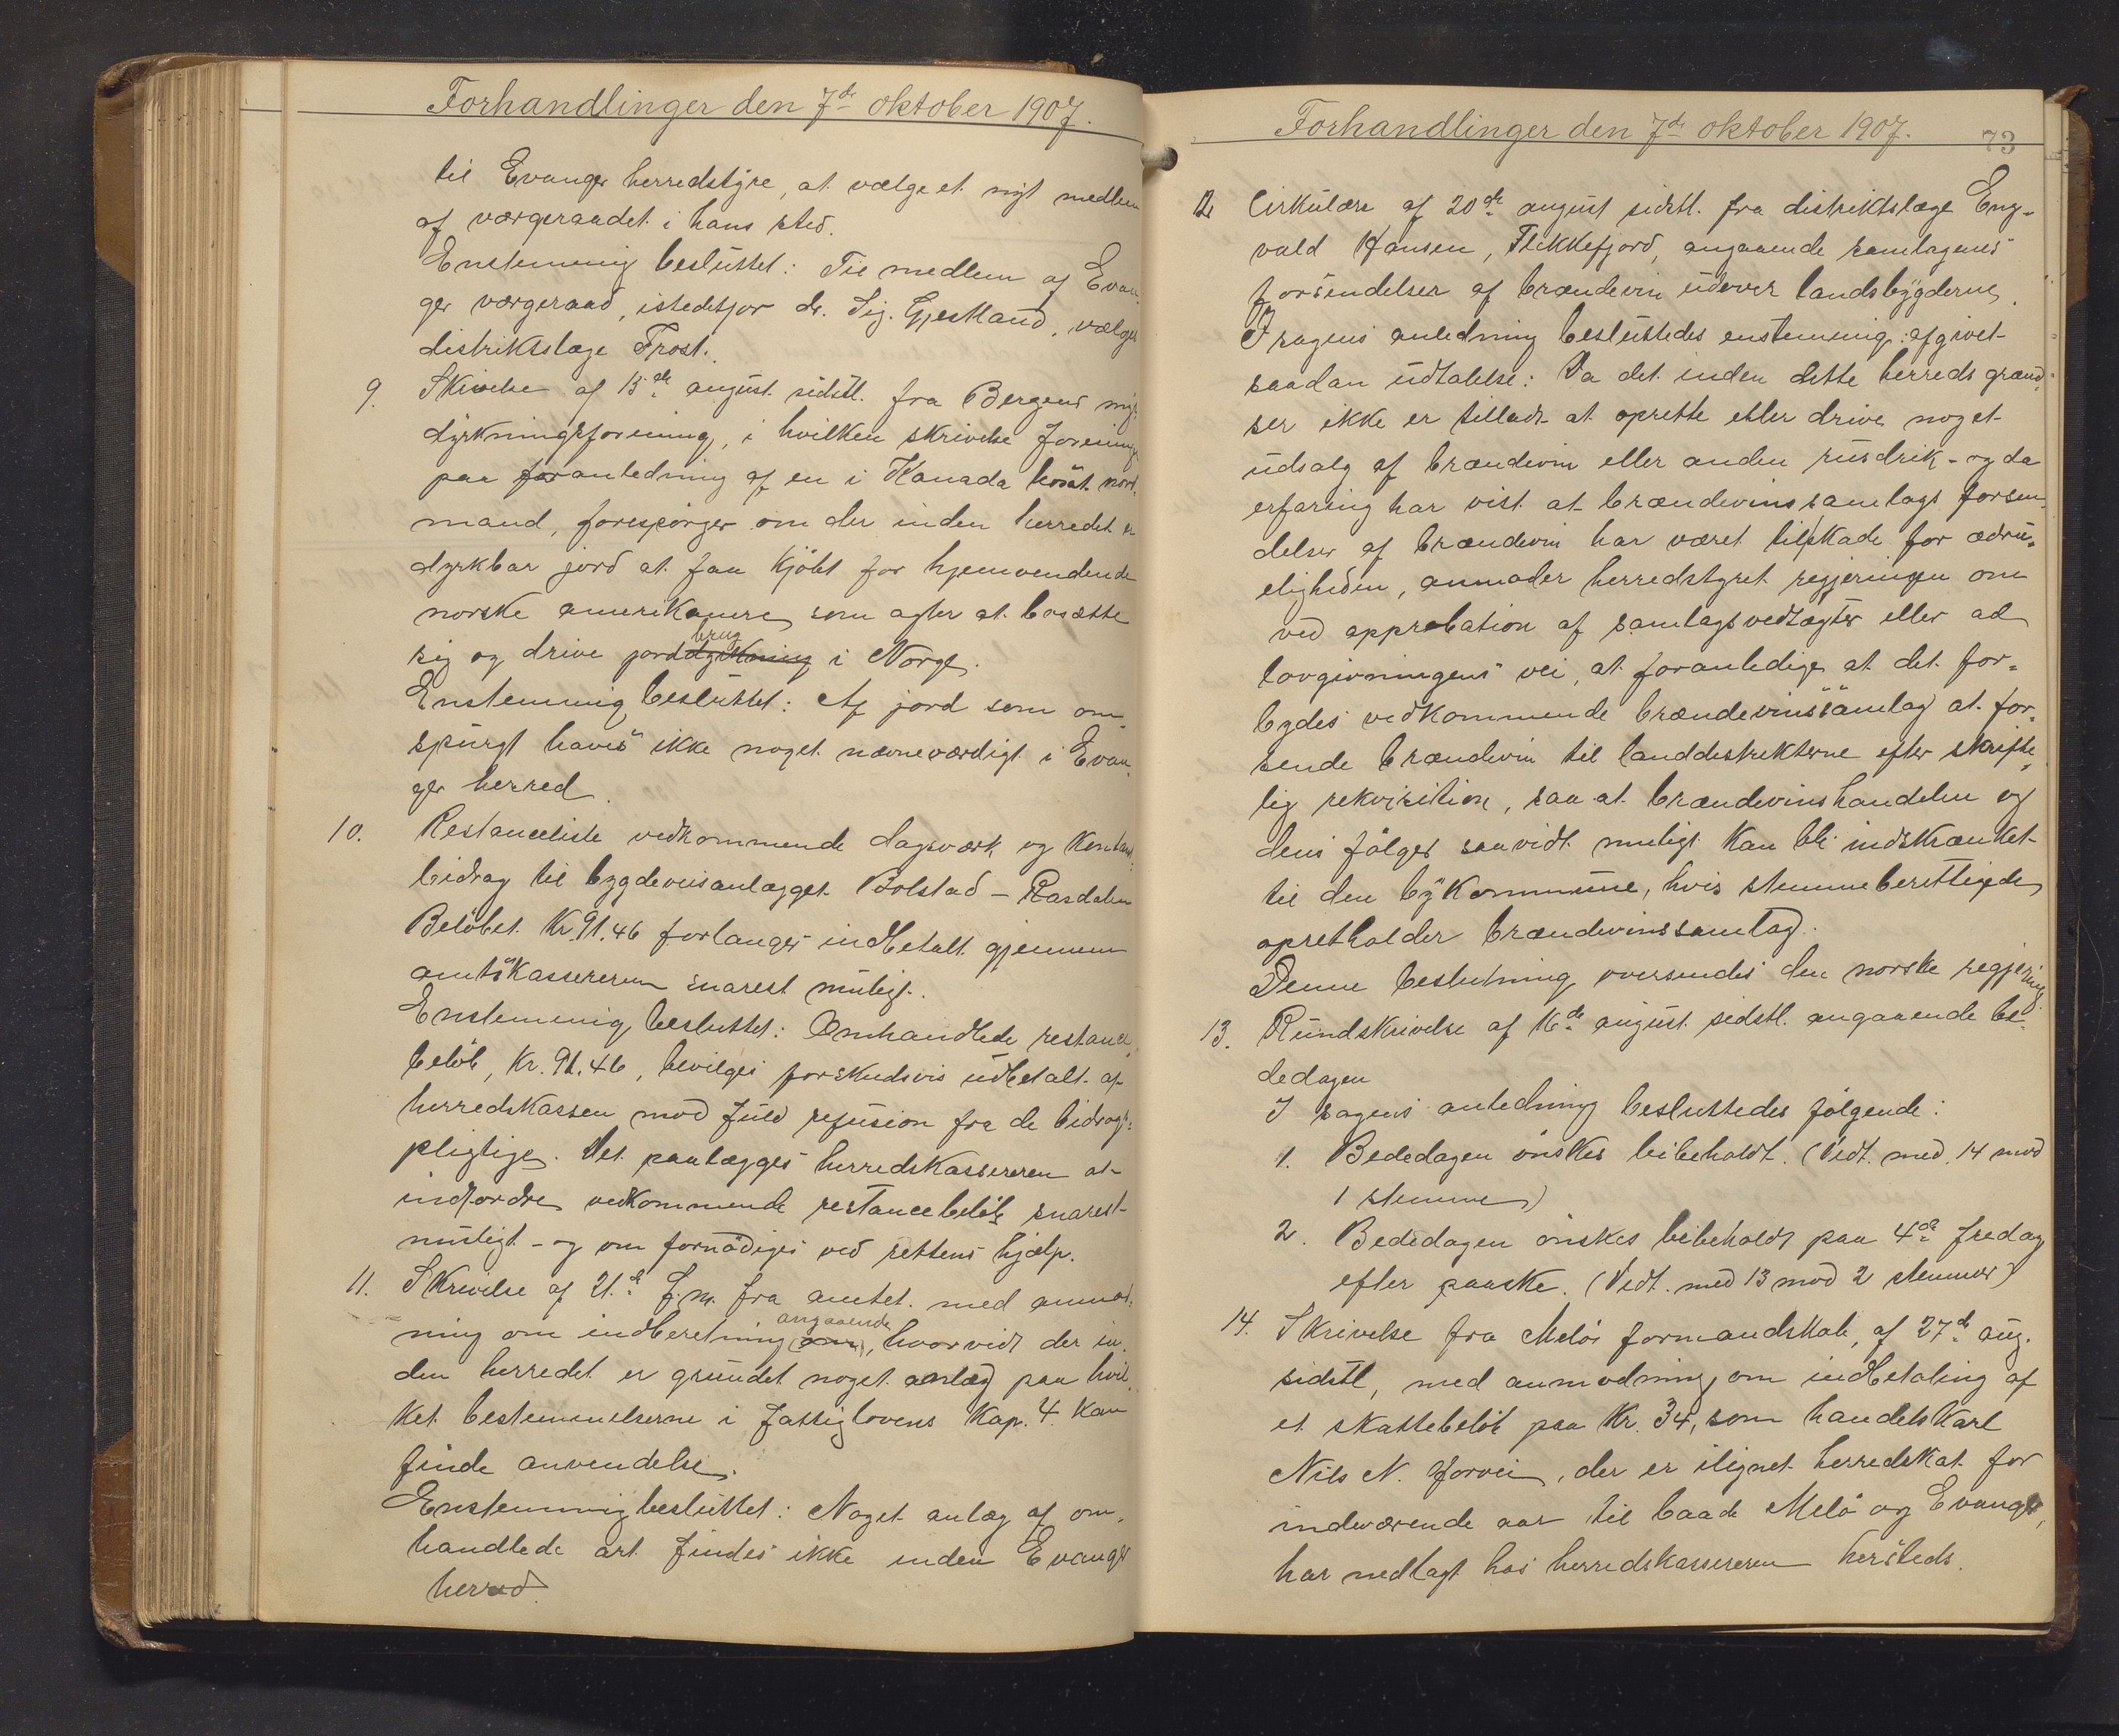 Forhandlinger den 7de oktober 1907.
til Evanger herredstyre, at vælge et nyt medlem
af værgeraadet i hans sted.
Enstemmig besluttet: Til medlem af Evan-
ger værgeraad, istedetfor dr. Sig. Gjestland, vælges
distriktslæge Frost.
9. Skrivelse af 15de august sidstl. fra Bergens myr-
dyrkningsforening, i hvilken skrivelse forening
paa foranledning af en i Kanada bosat nord-
mand, forespørger om der inden herredet er
dyrkbar jord at faa kjøbt for hjemvendende
norske amerikanere som agter at bosætte
sig og drive jorddyrkning brug i Norge.
Enstemmig besluttet: Af jord som om-
spurgt haves ikke noget nævneværdigt i Evan-
ger herred.
10. Restanceliste vedkommende dagsværk og kontant-
bidrag til bygdeveisanlægget Bolstad - Rasdalen
Beløbet Kr. 91.46 forlanges indbetalt gjennem
amtskassereren snarest muligt.
Enstemmig besluttet: Omhandlede restance-
beløb, Kr. 91.46, bevilges forskudsvis udbetalt af
herredskassen mod fuld refusion fra de bidrags-
pligtige. Det paalægges herredskassereren at
indfordre vedkommende restancebeløb snarest
muligt - og om fornødiges ved rettens hjælp.
11. Skrivelse af 21de f.m. fra amtet med anmod-
ning om indberetning (om) angaaende, hvorvidt der in-
den herredet er grundet noget anlæg paa hvil-
ket bestemmelserne i fattiglovens Kap. 4 kan
finde anvendelse.
Enstemmig besluttet: Noget anlæg af om-
handlede art findes ikke inden Evanger
herred.
Forhandlinger den 7de oktober 1907.
73
12. Cirkulære af 20de august sidstl. fra distriktslæge Eng-
vald Hansen, Flekkefjord, angaaende samlagenes
forsendelser af brændevin udover landsbygderne.
I sagens anledning besluttedes enstemmig afgivet
saadan udtalelse: Da det inden dette herreds grænd-
ser ikke er tilladt at oprette eller drive noget
udsalg af brændevin eller anden rusdrik - og da
erfaring har vist at brændevinssamlags forsen-
delser af brændevin har været til skade for ædru-
eligheden, anmoder herredstyret regjeringen om
ved approbation af samlagsvedtægter eller ad
lovgivningens vei, at foranledige at det for-
bydes vedkommende brændevinssamlag at for-
sende brændevin til landdistrikterne efter skrift-
lig rekvisition, saa at brændevinshandelen og
dens følger saavidt muligt kan bli indskrænket
til den bykommune, hvis stemmeberettigede
opretholder brændevinssamlag.
Denne beslutning oversendes den norske regjering.
13. Rundskrivelse af 16de august sidstl. angaaende be-
dedagen
I sagens anledning besluttedes følgende:
1. Bededagen ønskes bibeholdt. (Vedt. med 14 mod
1 stemme)
2. Bededagen ønskes bibeholdt paa 4de fredag
efter paaske. (Vedt. med 13 mod 2 stemmer)
14. Skrivelse fra Melø formandskab, af 27de aug.
sidstl, med anmodning om indbetaling af
et skattebeløb paa Kr. 34, som handelskarl
Nils N. Horvei, der er ilignet herredskat for
indeværende aar til baade Melø og Evanger,
har nedlagt hos herredskassereren hersteds.